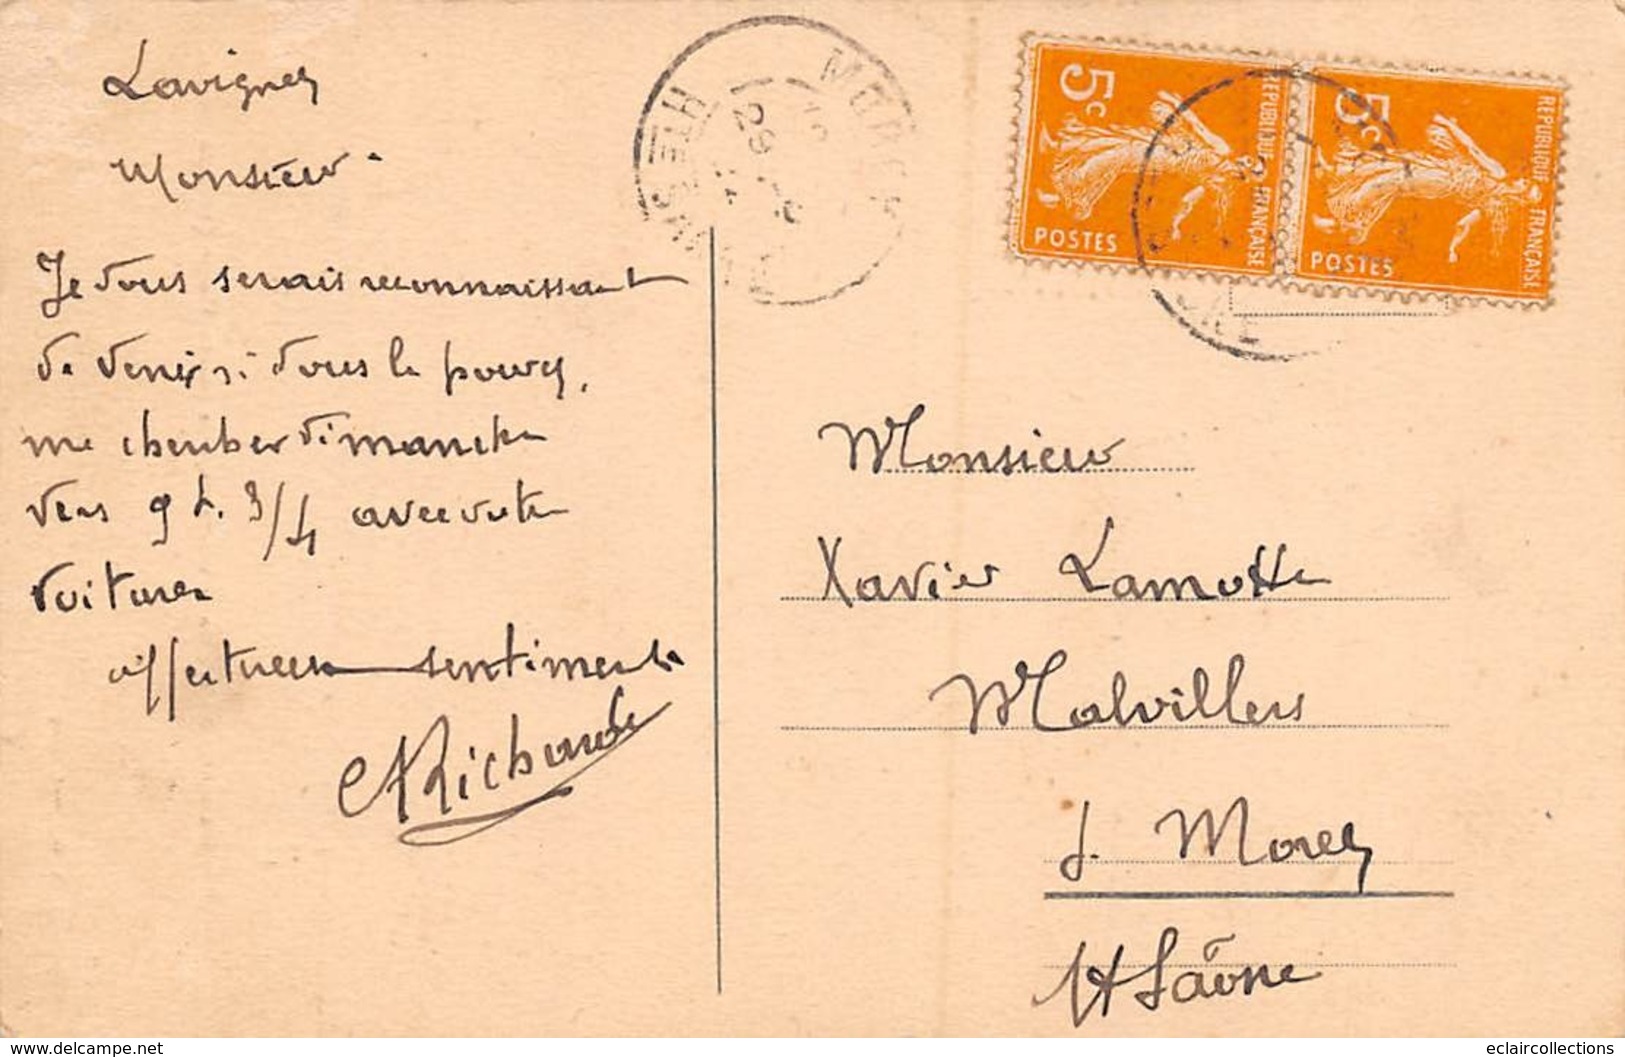 Lavigney
Monsieur
Je vous serais reconnaissant
de venir si vous le pouvez,
me chercher dimanche
vers 9 h. 3/4 avec votre
voiture
affectueux sentiments
Richarde
5c
REPUBLIQUE FRANÇAISE
POSTES
5c
REPUBLIQUE FRANÇAISE
POSTES
MOREY
HTE SAONE
Monsieur
Xavier Lamotte
Malvillers
p. Morey
Hte Saône
delcampe.net
eclaircollections